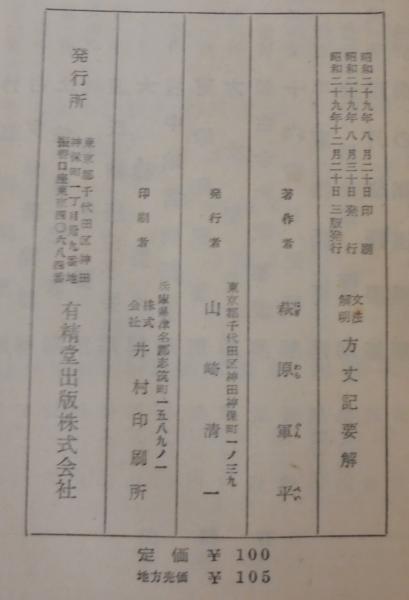 昭和二十九年八月二十日 印刷
昭和二十九年八月三十日 発行
昭和二十九年十二月二十日 三版発行
文法
解明
方丈記要解
著作者
萩原軍平
はぎ わら ぐん ぺい
東京都千代田区神田神保町一ノ三九
発行者
山崎清一
兵庫県津名郡志筑町一五八九ノ一
印刷者
株式
会社
井村印刷所
発行所
東京都千代田区神田
神保町一丁目
振替口座東京四〇六八四番
有精堂出版株式会社
定価 ¥ 100
地方売価 ¥ 105